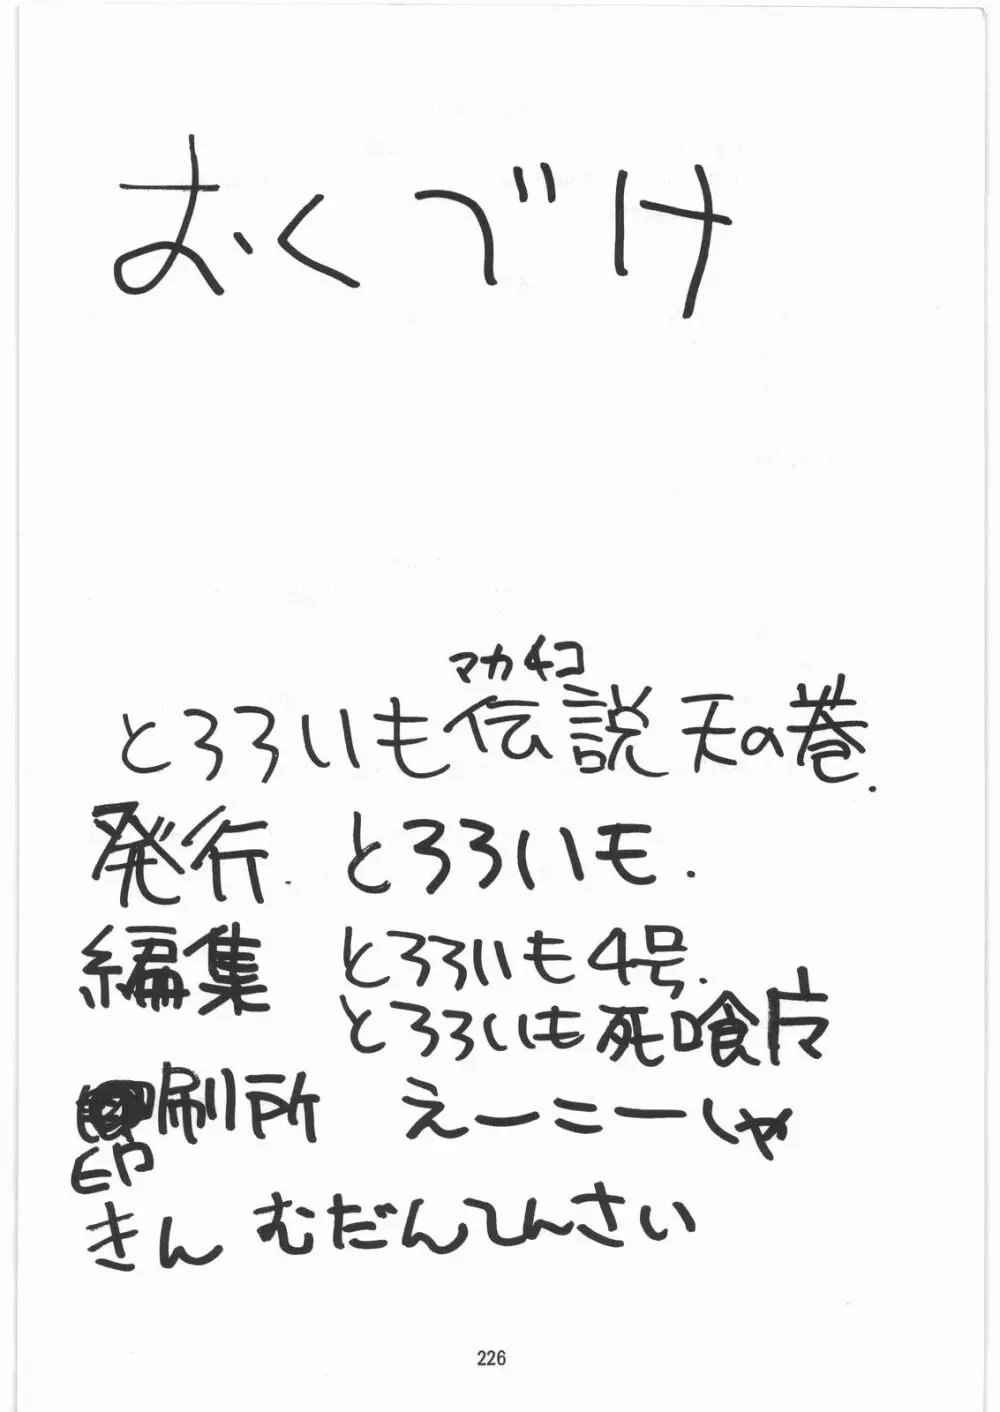 おくづけ
マカチコ
とろろいも伝説 天の巻.
発行. とろろいも.
編集 とろろいも4号.
とろろいも死喰
刷所 えーこーしゃ
印
きん むだんてんさい
226